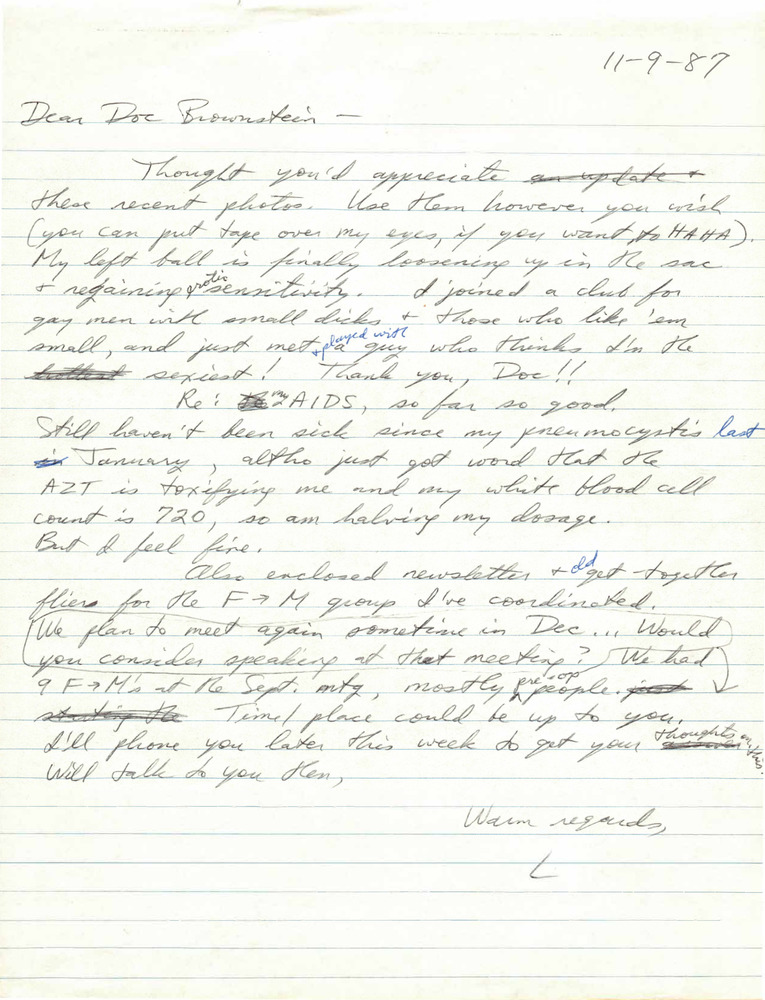 11-9-87
Dear Doc Brownstein —
Thought you'd appreciate an update +
these recent photos. Use them however you wish
(you can put tape over my eyes, if you want to HAHA).
My left ball is finally loosening up in the sac
+ regaining erotic sensitivity. I joined a club for
gay men with small dicks + those who like 'em
small, and just met + played with a guy who thinks I'm the
hottest sexiest! Thank you, Doc!!
Re: my AIDS, so far so good.
Still haven't been sick since my pneumocystis last
in January, altho just got word that the
AZT is toxifying me and my white blood cell
count is 720, so am halving my dosage.
But I feel fine.
Also enclosed newsletter + old get-together
fliers for the F→M group I've coordinated.
We plan to meet again sometime in Dec... Would
you consider speaking at that meeting? We had
9 F→M's at the Sept. mtg, mostly pre-op people. just
starting the Time/place could be up to you.
I'll phone you later this week to get your answer thoughts on this.
Will talk to you then,
Warm regards,
L